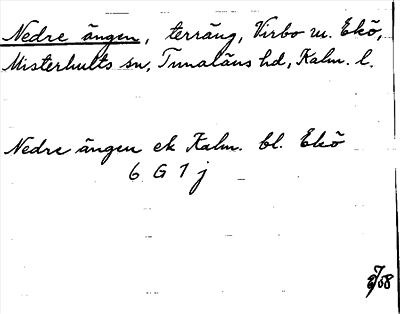 Nedre ängen, terräng, Virbo m. Ekö,
Misterhults sn, Tunaläns hd, Kalm. l.
Nedre ängen ek Kalm. bl. Ekö
6 G 1 j